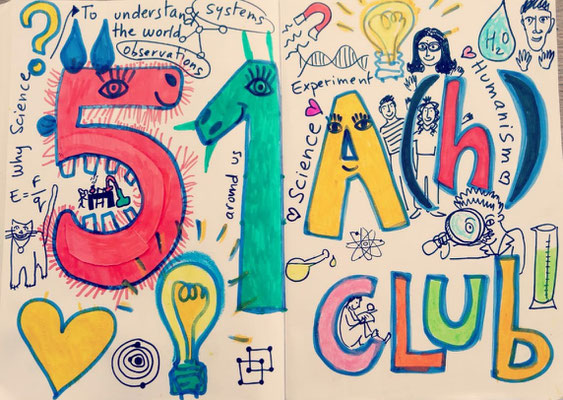 ?
To understand
the world
systems
observations
Why Science
51
around us
E = F/q
Experiment
Science
A(h)
Humanism
H₂O
CLUB